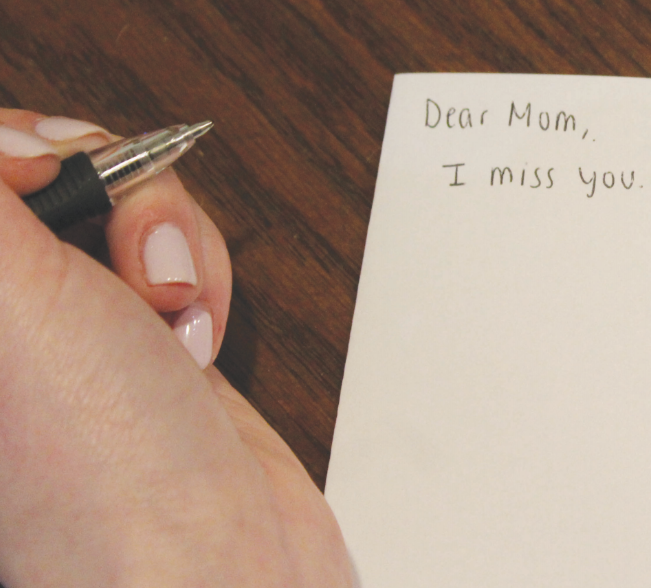 Dear Mom,
I miss you.